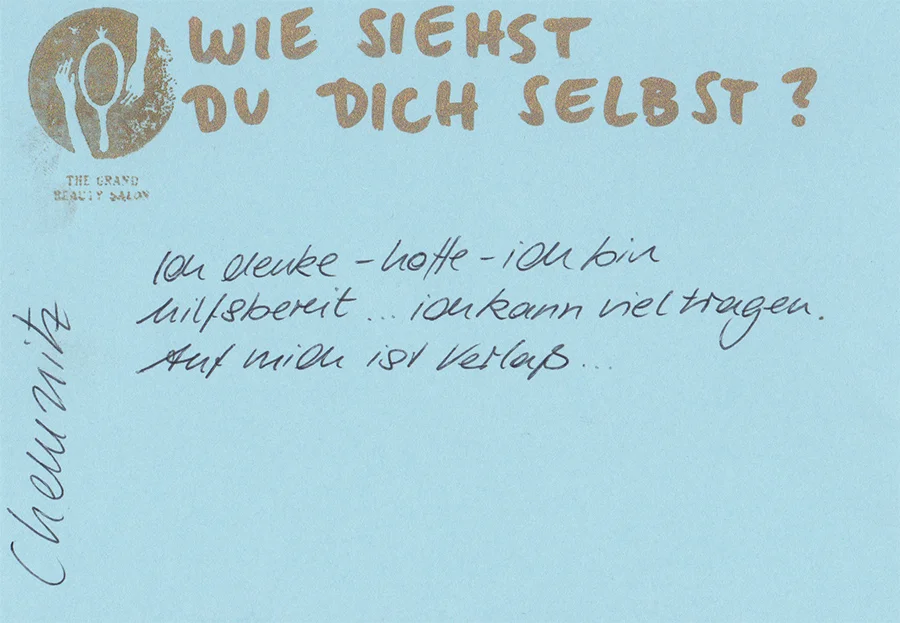 WIE SIEHST
DU DICH SELBST?
THE GRAND
BEAUTY SALON
Ich denke - hoffe - ich bin
hilfsbereit ... ich kann viel tragen.
Auf mich ist Verlaß ...
Chemnitz